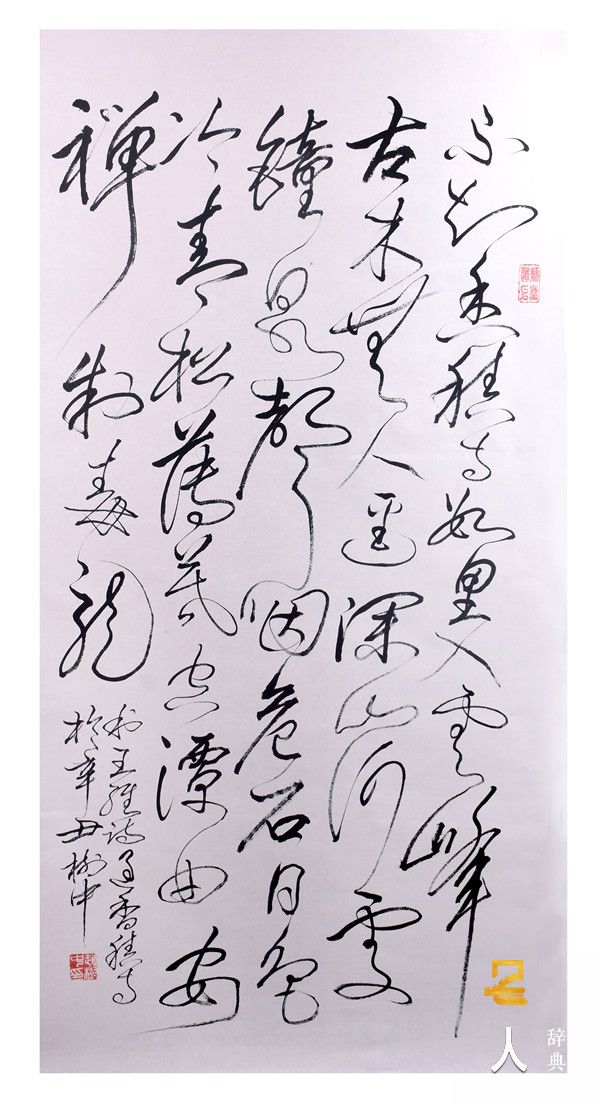 不知香積寺數里入雲峰
古木無人逕深山何處
鐘泉聲咽危石日色
冷青松薄暮空潭曲安
禪制毒龍
王維詩過香積寺
於辛丑樹中
人
辞典